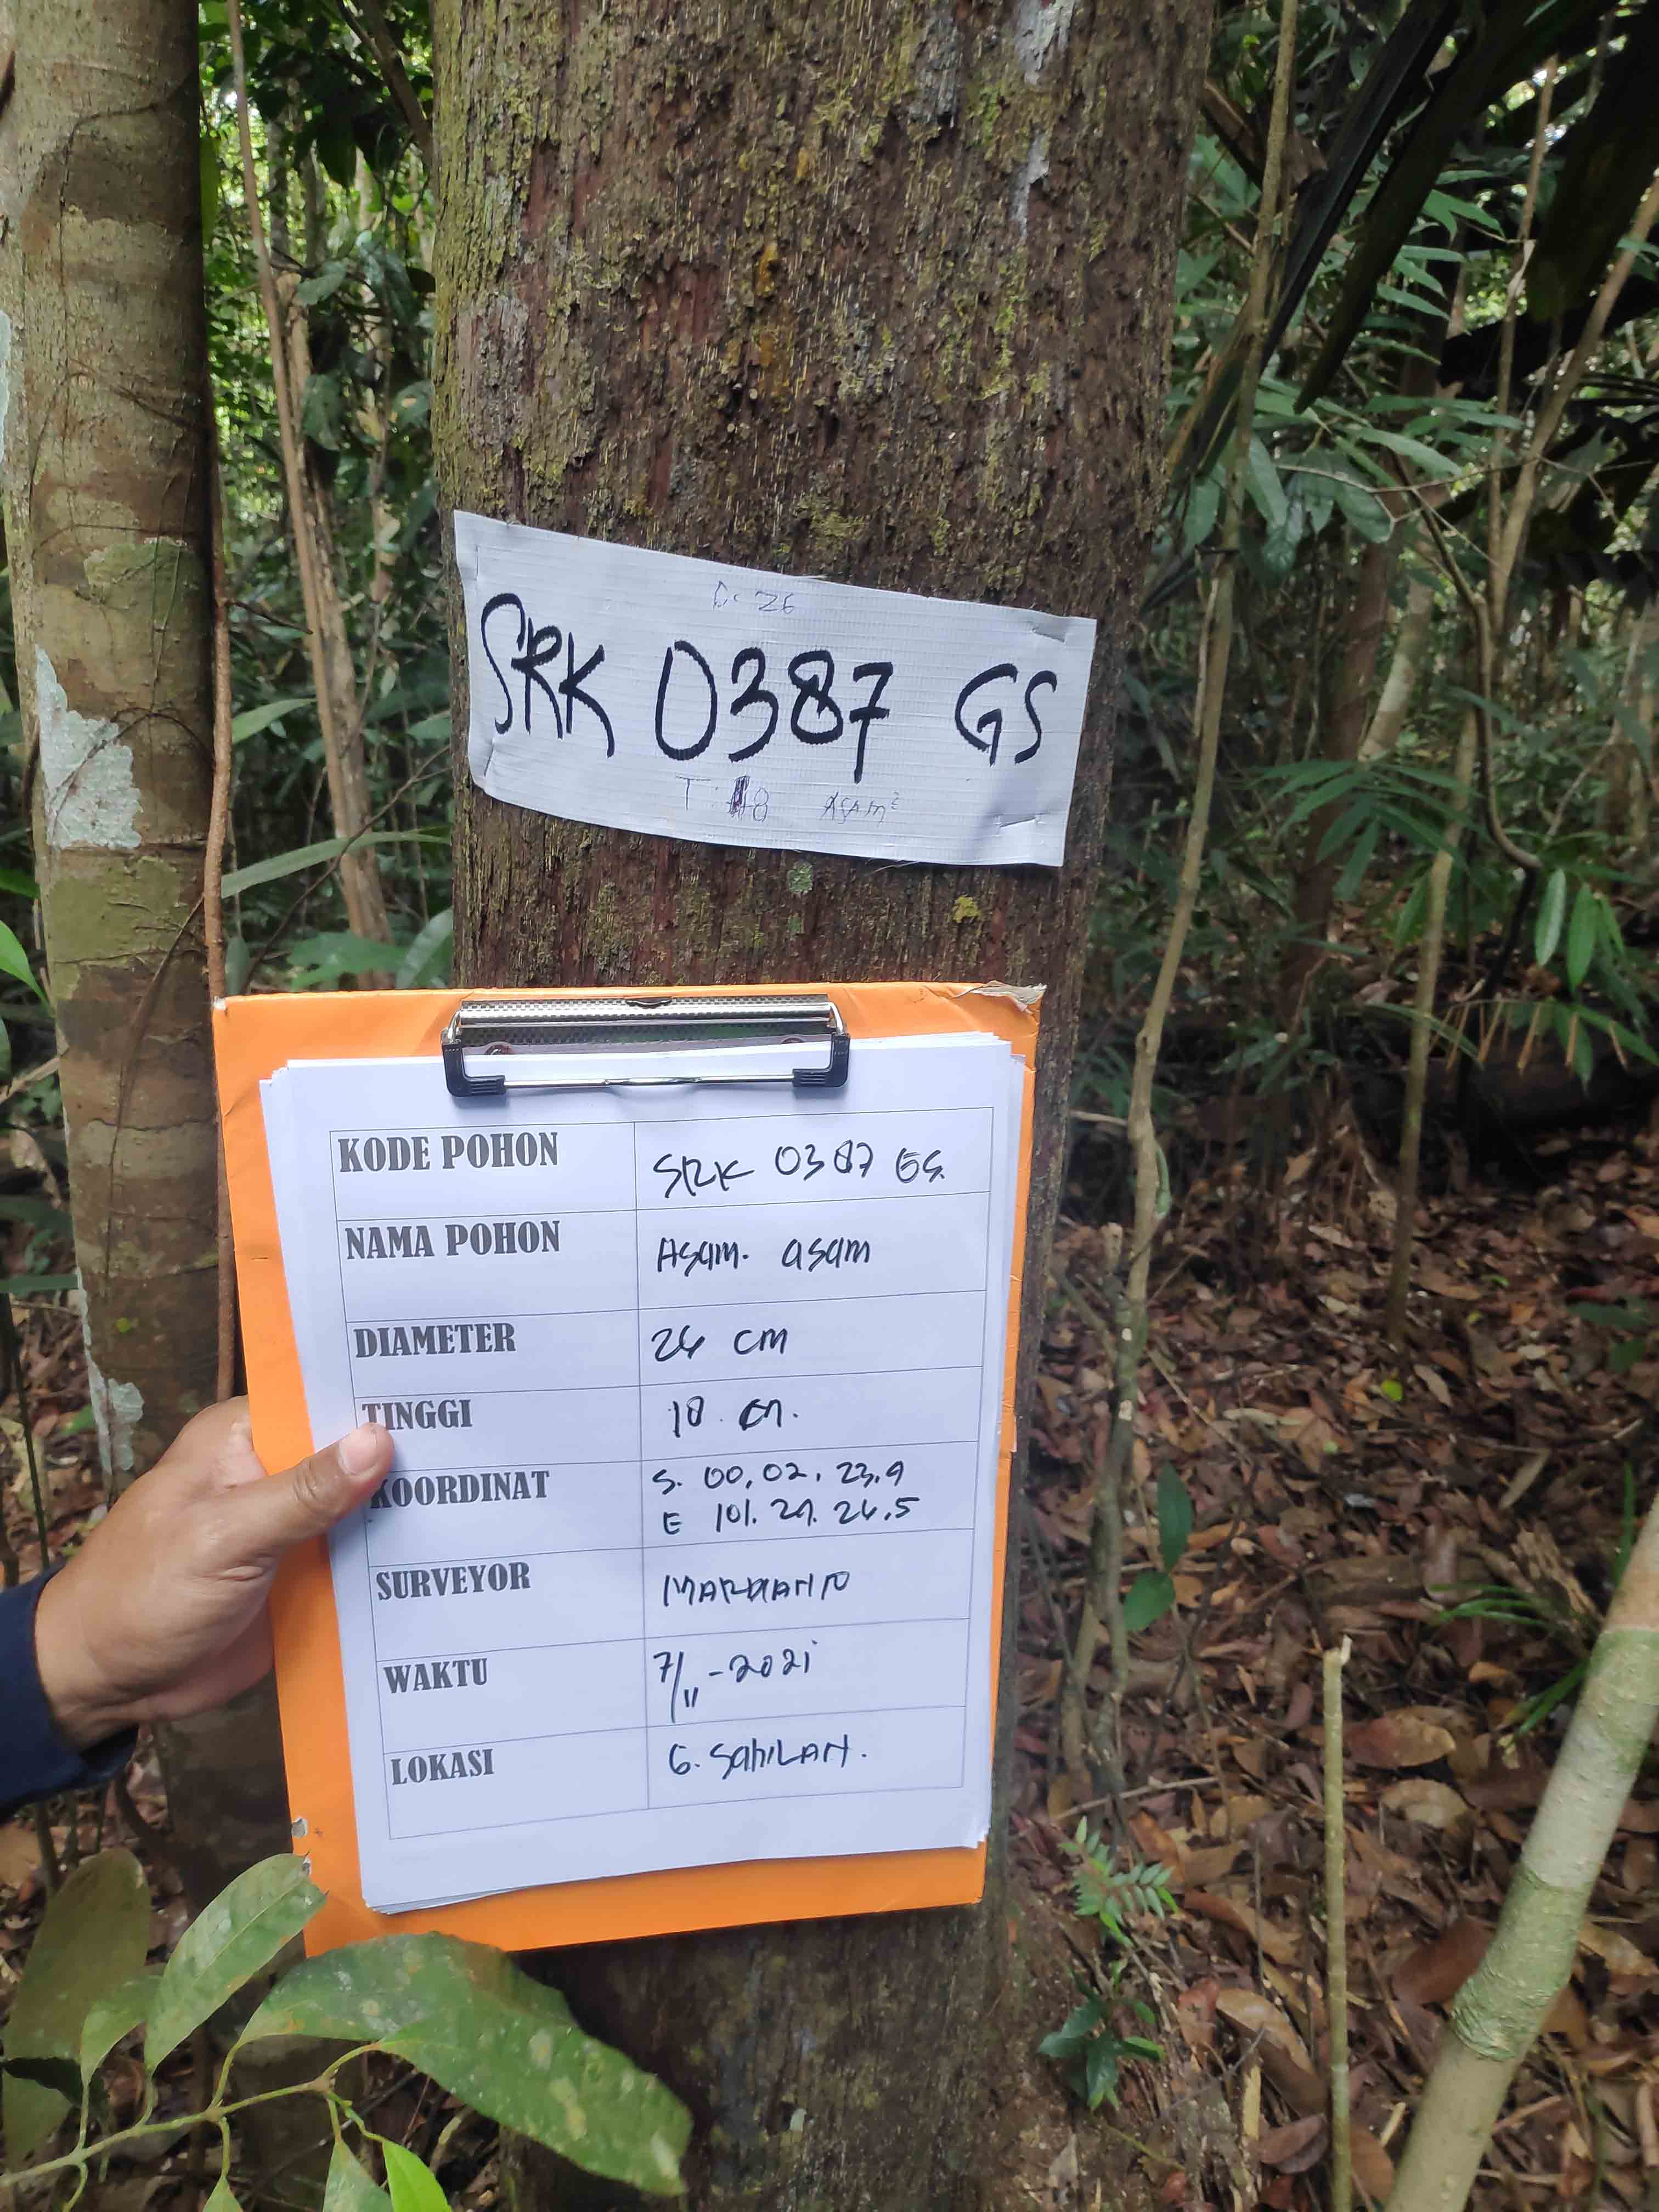 D: 26
SRK 0387 GS
T: 18 Asam²
KODE POHON SRK 0387 GS.
NAMA POHON Asam. asam
DIAMETER 26 cm
TINGGI 18 m.
KOORDINAT S. 00, 02, 23,9
E 101. 29. 26,5
SURVEYOR MARDIANTO
WAKTU 7/11-2021
LOKASI G. SAHILAN.